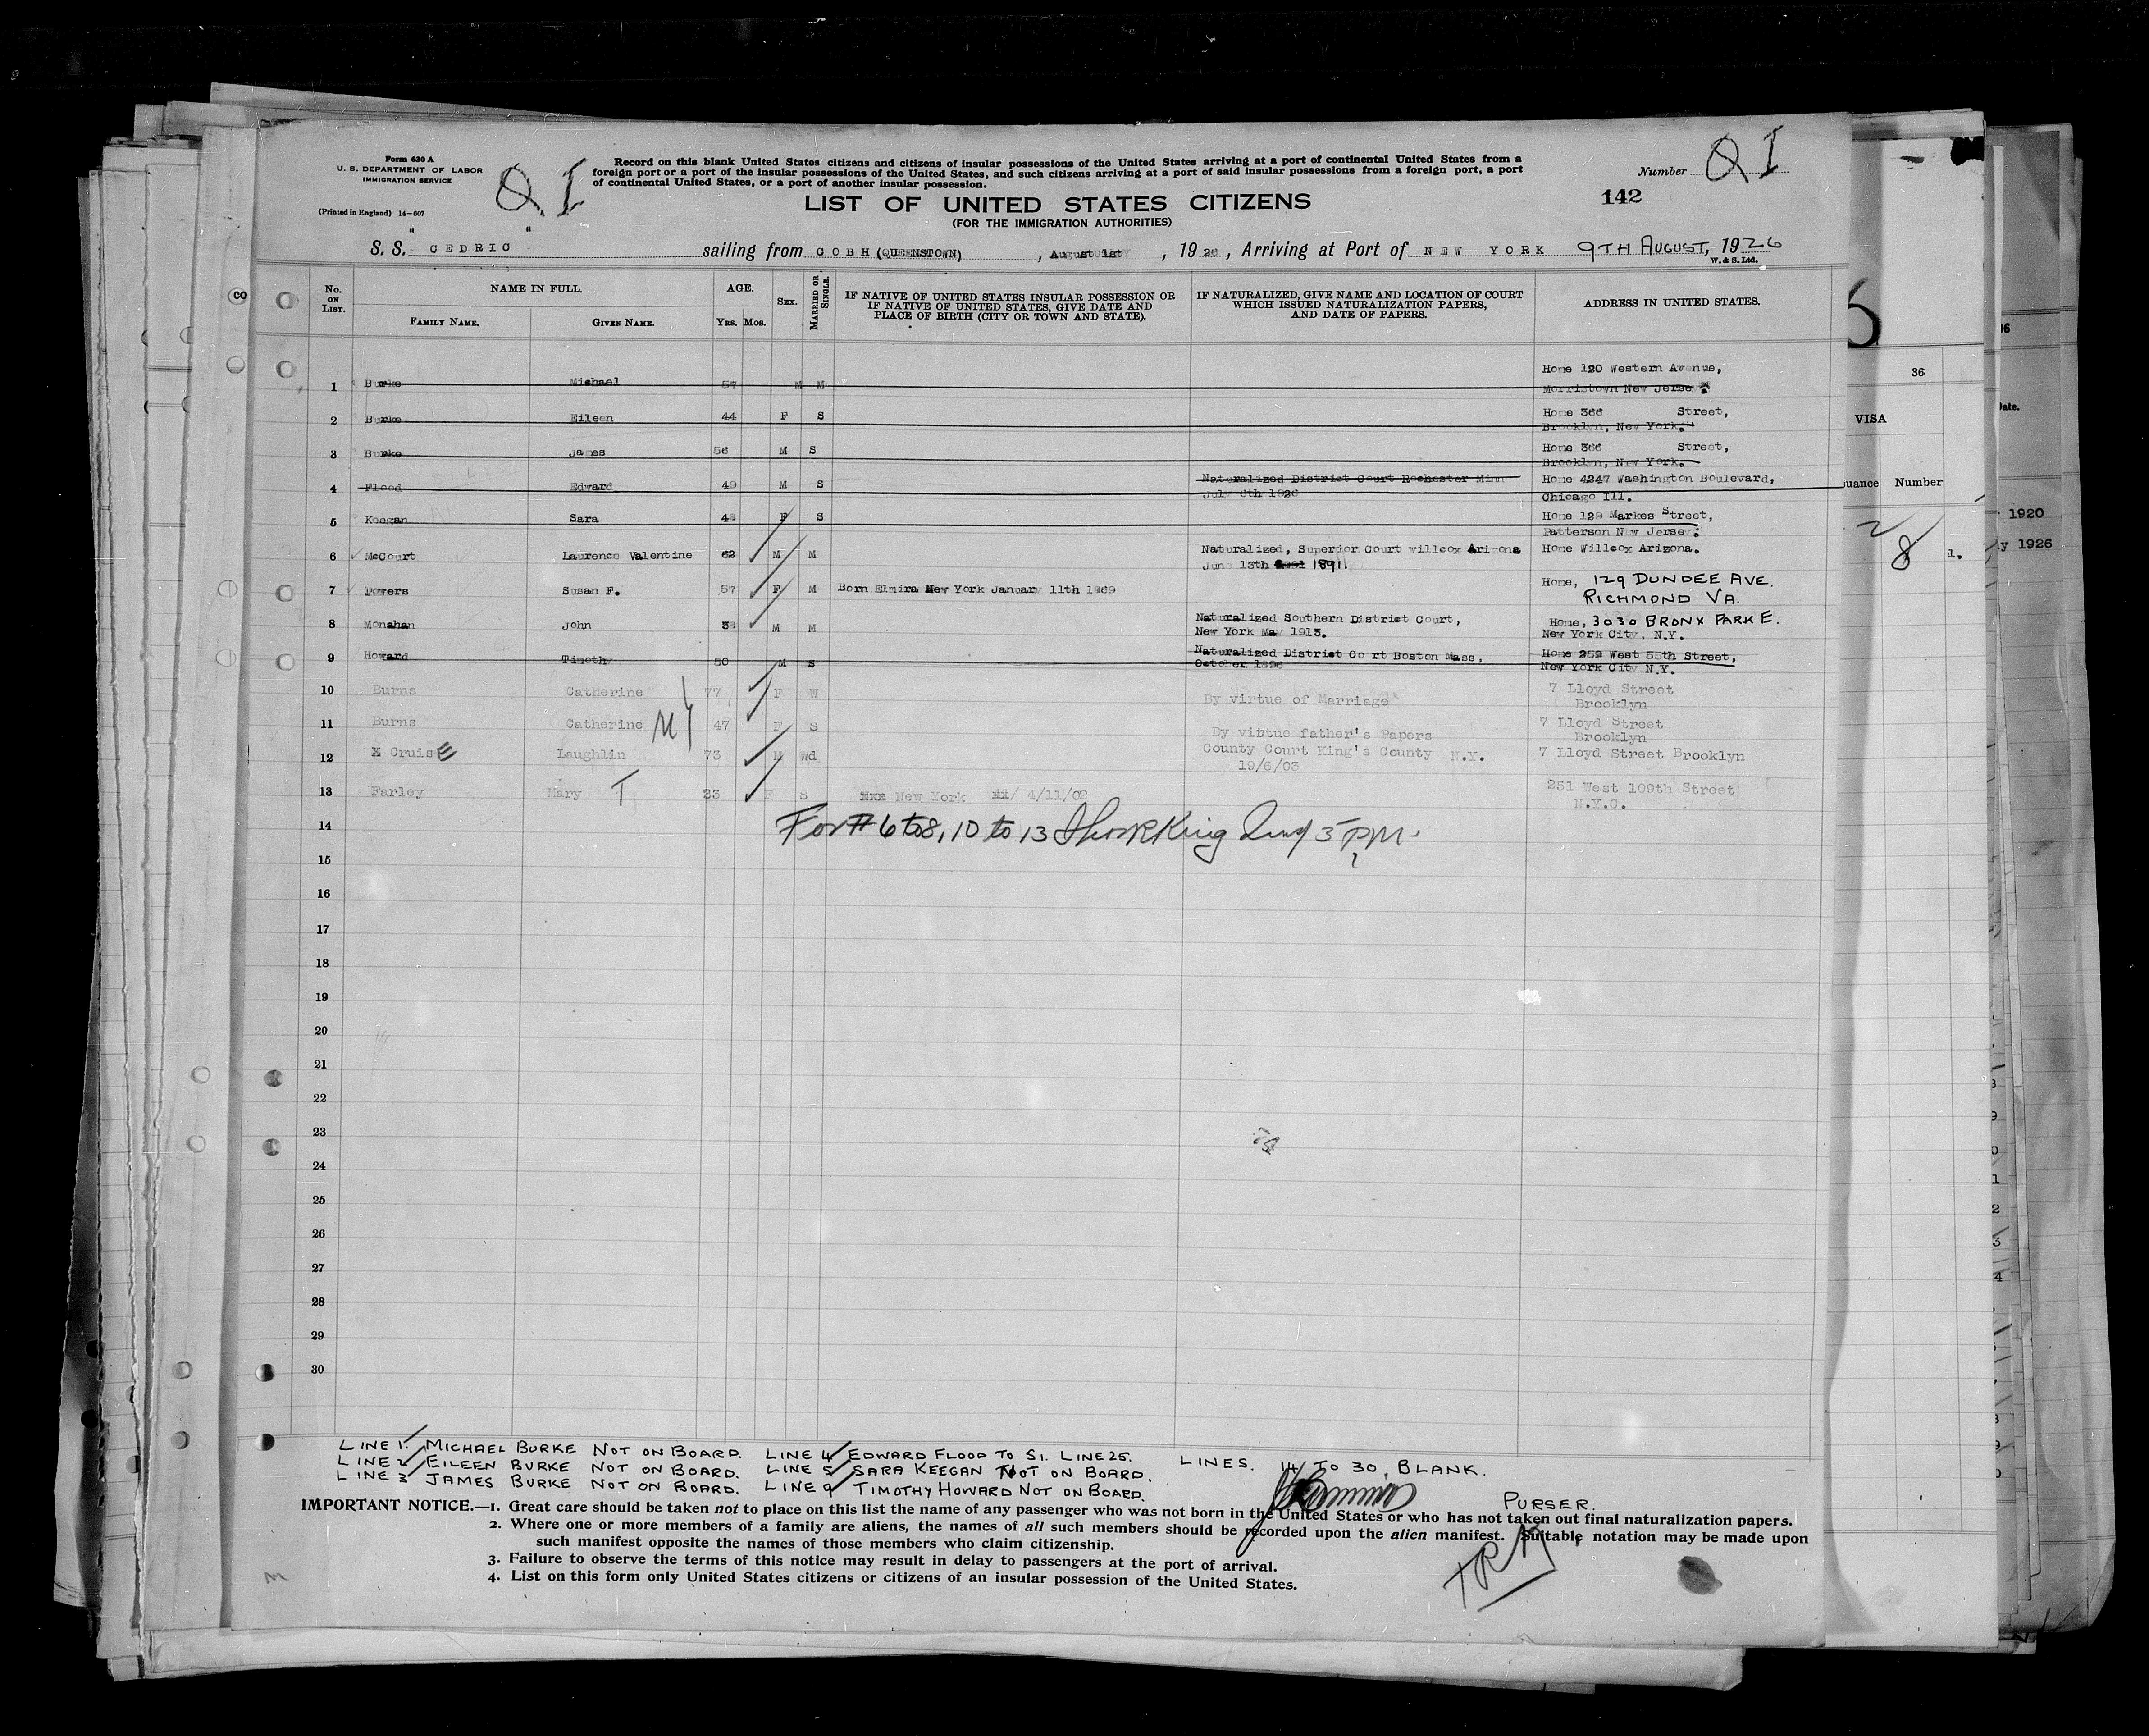 Form 630 A
U. S. DEPARTMENT OF LABOR
IMMIGRATION SERVICE
(Printed in England) 14-607
Q I
Record on this blank United States citizens and citizens of insular possessions of the United States arriving at a port of continental United States from a
foreign port or a port of the insular possessions of the United States, and such citizens arriving at a port of said insular possessions from a foreign port, a port
of continental United States, or a port of another insular possession.
Number Q I
142
LIST OF UNITED STATES CITIZENS
(FOR THE IMMIGRATION AUTHORITIES)
S. S. "CEDRIC" sailing from COBH (QUEENSTOWN), August 1st, 1926, Arriving at Port of NEW YORK 9TH AUGUST, 1926
W. & S. Ltd.
No. ON LIST. NAME IN FULL. AGE. SEX. MARRIED OR SINGLE. IF NATIVE OF UNITED STATES INSULAR POSSESSION OR IF NATIVE OF UNITED STATES, GIVE DATE AND PLACE OF BIRTH (CITY OR TOWN AND STATE). IF NATURALIZED, GIVE NAME AND LOCATION OF COURT WHICH ISSUED NATURALIZATION PAPERS, AND DATE OF PAPERS. ADDRESS IN UNITED STATES.
FAMILY NAME. GIVEN NAME. YRS. MOS.
1 Burke Michael 57 M M Home 120 Western Avenue,
Morristown New Jersey.
2 Burke Eileen 44 F S Home 366 Street,
Brooklyn, New York.
3 Burke James 56 M S Home 366 Street,
Brooklyn, New York.
4 Flood Edward 49 M S Naturalized District Court Rochester Minn Home 4247 Washington Boulevard,
July 6th 1926 Chicago Ill.
5 Keegan Sara F S Home 129 Markes Street,
Patterson New Jersey.
6 McCourt Laurence Valentine 62 M M Naturalized, Superior Court willcox Arizona Home Willcox Arizona.
June 13th 1891
7 Powers Susan F. 57 F M Born Elmira New York January 11th 1869 Home, 129 DUNDEE AVE.
RICHMOND VA.
8 Monahan John M M Naturalized Southern District Court, Home, 3030 BRONX PARK E.
New York May 1913. New York City, N.Y.
9 Howard Timothy 50 M S Naturalized District Co rt Boston Mass, Home 259 West 55th Street,
October New York City N.Y.
10 Burns Catherine 77 F W By virtue of Marriage 7 Lloyd Street
Brooklyn
11 Burns Catherine M 47 F S By virtue father's Papers 7 Lloyd Street
Brooklyn
12 CruisE Laughlin 73 M Wd County Court King's County N.Y. 7 Lloyd Street Brooklyn
19/6/03
13 Farley Mary T 23 F S New York 4/11/02 251 West 109th Street
N.Y.C.
14 For # 6 to 8, 10 to 13 King 5 PM.
15
16
17
18
19
20
21
22
23
24
25
26
27
28
29
30
LINE 1. MICHAEL BURKE NOT ON BOARD. LINE 4 EDWARD FLOOD TO S1. LINE 25. LINES. 14 TO 30. BLANK.
LINE 2 EILEEN BURKE NOT ON BOARD. LINE 5 SARA KEEGAN NOT ON BOARD.
LINE 3 JAMES BURKE NOT ON BOARD. LINE 9 TIMOTHY HOWARD NOT ON BOARD.
PURSER.
IMPORTANT NOTICE.—1. Great care should be taken not to place on this list the name of any passenger who was not born in the United States or who has not taken out final naturalization papers.
2. Where one or more members of a family are aliens, the names of all such members should be recorded upon the alien manifest. Suitable notation may be made upon
such manifest opposite the names of those members who claim citizenship.
3. Failure to observe the terms of this notice may result in delay to passengers at the port of arrival.
4. List on this form only United States citizens or citizens of an insular possession of the United States.
CO
36
VISA
Number
8
Date.
1920
1926